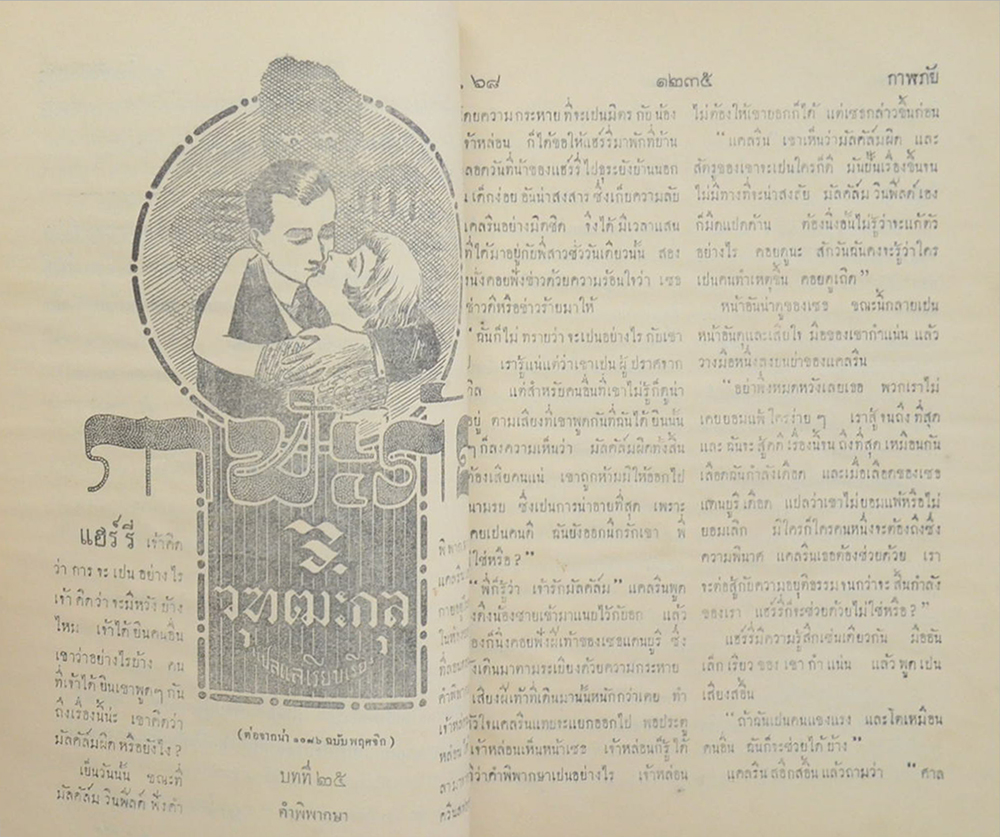 แฮร์รี่ เจ้าคิด
ว่า การ จะ เปน อย่าง ไร
เจ้า คิดว่าจะมีหวัง บ้าง
ไหม เจ้าได้ยินคนอื่น
เขาว่าอย่างไรบ้าง คน
ที่เจ้าได้ ยินเขาพูดๆ กัน
ถึงเรื่องนี้น่ะ เขาคิดว่า
มัลคัล์มผิด หรือยังไง ?
เย็นวันนั้น ขณะที่
มัลคัล์ม วินฟีลด์ ฟังคำ
วิ.
วุฑฒะกุล
แปลแลเรียบเรียง
(ต่อจากน่า ๑๑๙๖ ฉบับพฤศจิก)
บทที่ ๒๕
คำพิพากษา
๖๘ ๑๒๓๕ ภาพภัย
ด้วยความ กระหาย ที่จะเปนมิตร กับ น้อง
เจ้าหล่อน ก็ได้ขอให้แฮร์รี่มาพักที่บ้าน
ตลอดวันที่น้าของแฮร์รี่ ไปธุระยังบ้านนอก
เด็กง่อย อันน่าสงสาร ซึ่งเก็บความลับ
แคลรินอย่างมิดชิด จึงได้ มีเวลาแสน
ที่ได้มาอยู่กับพี่สาวชั่ววันเดียวนั้น สอง
นั่งคอยฟังข่าวด้วยความร้อนใจว่า เชธ
ข่าวดีหรือข่าวร้ายมาให้
" ฉันก็ไม่ ทราบว่า จะเปนอย่างไร กับเขา
เรารู้แน่แต่ว่าเขาเปน ผู้ ปราศจาก
แต่สำหรับคนอื่นที่เขาไม่รู้ก็ดูน่า
อยู่ ตามเสียงที่เขาพูดกันที่ฉันได้ ยินนั้น
ๆ ก็ลงความเห็นว่า มัลคัล์มผิดทั้งสิ้น
ต้องเสียคนแน่ เขาถูกห้ามมิให้ออกไป
ซึ่งเปนการน่าอายที่สุด เพราะ
เคยเปนคนดี ฉันยังออกนึกรักเขา พี่
ไม่ใช่หรือ ? "
" พี่ก็รู้ว่า เจ้ารักมัลคัล์ม " แคลรินพูด
ดึงน้องชายเข้ามาแนบไว้กับอก แล้ว
ก็นิ่งคอยฟังฝีเท้าของเชธแดนบูรี ซึ่ง
เดินมาตามระเบียงด้วยความกระหาย
เสียงฝีเท้าที่เดินมานั้นหนักกว่าเคย ทำ
หัวใจแคลรินแทบจะแยกออกไป พอประตู
เจ้าหล่อนเห็นหน้าเชธ เจ้าหล่อนก็รู้ ได้
ว่าคำพิพากษาเปนอย่างไร เจ้าหล่อน
ไม่ต้องให้เขาบอกก็ได้ แต่เชธกล่าวขึ้นก่อน
" แคลริน เขาเห็นว่ามัลคัล์มผิด และ
ศัตรูของเขาจะเปนใครก็ดี มันปั้นเรื่องขึ้นจน
ไม่มีทางที่จะน่าสงสัย มัลคัล์ม วินฟีลด์ เอง
ก็มืดแปดด้าน ต้องนิ่งอั้นไม่รู้ว่าจะแก้ตัว
อย่างไร คอยดูนะ สักวันฉันคงจะรู้ว่าใคร
เปนคนทำเหตุขึ้น คอยดูเถิด "
หน้าอันน่าดูของเชธ ขณะนี้กลายเปน
หน้าอันดุและเสียใจ มือของเขากำแน่น แล้ว
วางมือหนึ่งลงบนบ่าของแคลริน
" อย่าพึ่งหมดหวังเลยเธอ พวกเราไม่
เคยยอมแพ้ ใครง่าย ๆ เราสู้ จนถึง ที่สุด
และ ฉันจะ สู้คดี เรื่องนี้จน ถึงที่สุด เหมือนกัน
เลือดฉันกำลังเดือด และเมื่อเลือดของเชธ
แดนบูรี เดือด แปลว่าเขาไม่ยอมแพ้หรือไม่
ยอมเลิก มีใครก็ใครคนหนึ่งจะต้องถึงซึ่ง
ความพินาศ แคลรินเธอต้องช่วยด้วย เรา
จะต่อสู้กับความอยุติธรรมจนกว่าจะ สิ้นกำลัง
ของเรา แฮร์รี่ก็จะช่วยด้วยไม่ใช่หรือ ? "
แฮร์รี่มีความรู้สึกเช่นเดียวกัน มืออัน
เล็ก เรียว ของ เขา กำ แน่น แล้ว พูด เปน
เสียงสอื้น
" ถ้าฉันเปนคนแขงแรง และโตเหมือน
คนอื่น ฉันก็จะช่วยได้ บ้าง "
แคลริน สอึกสอื้น แล้วถามว่า " ศาล